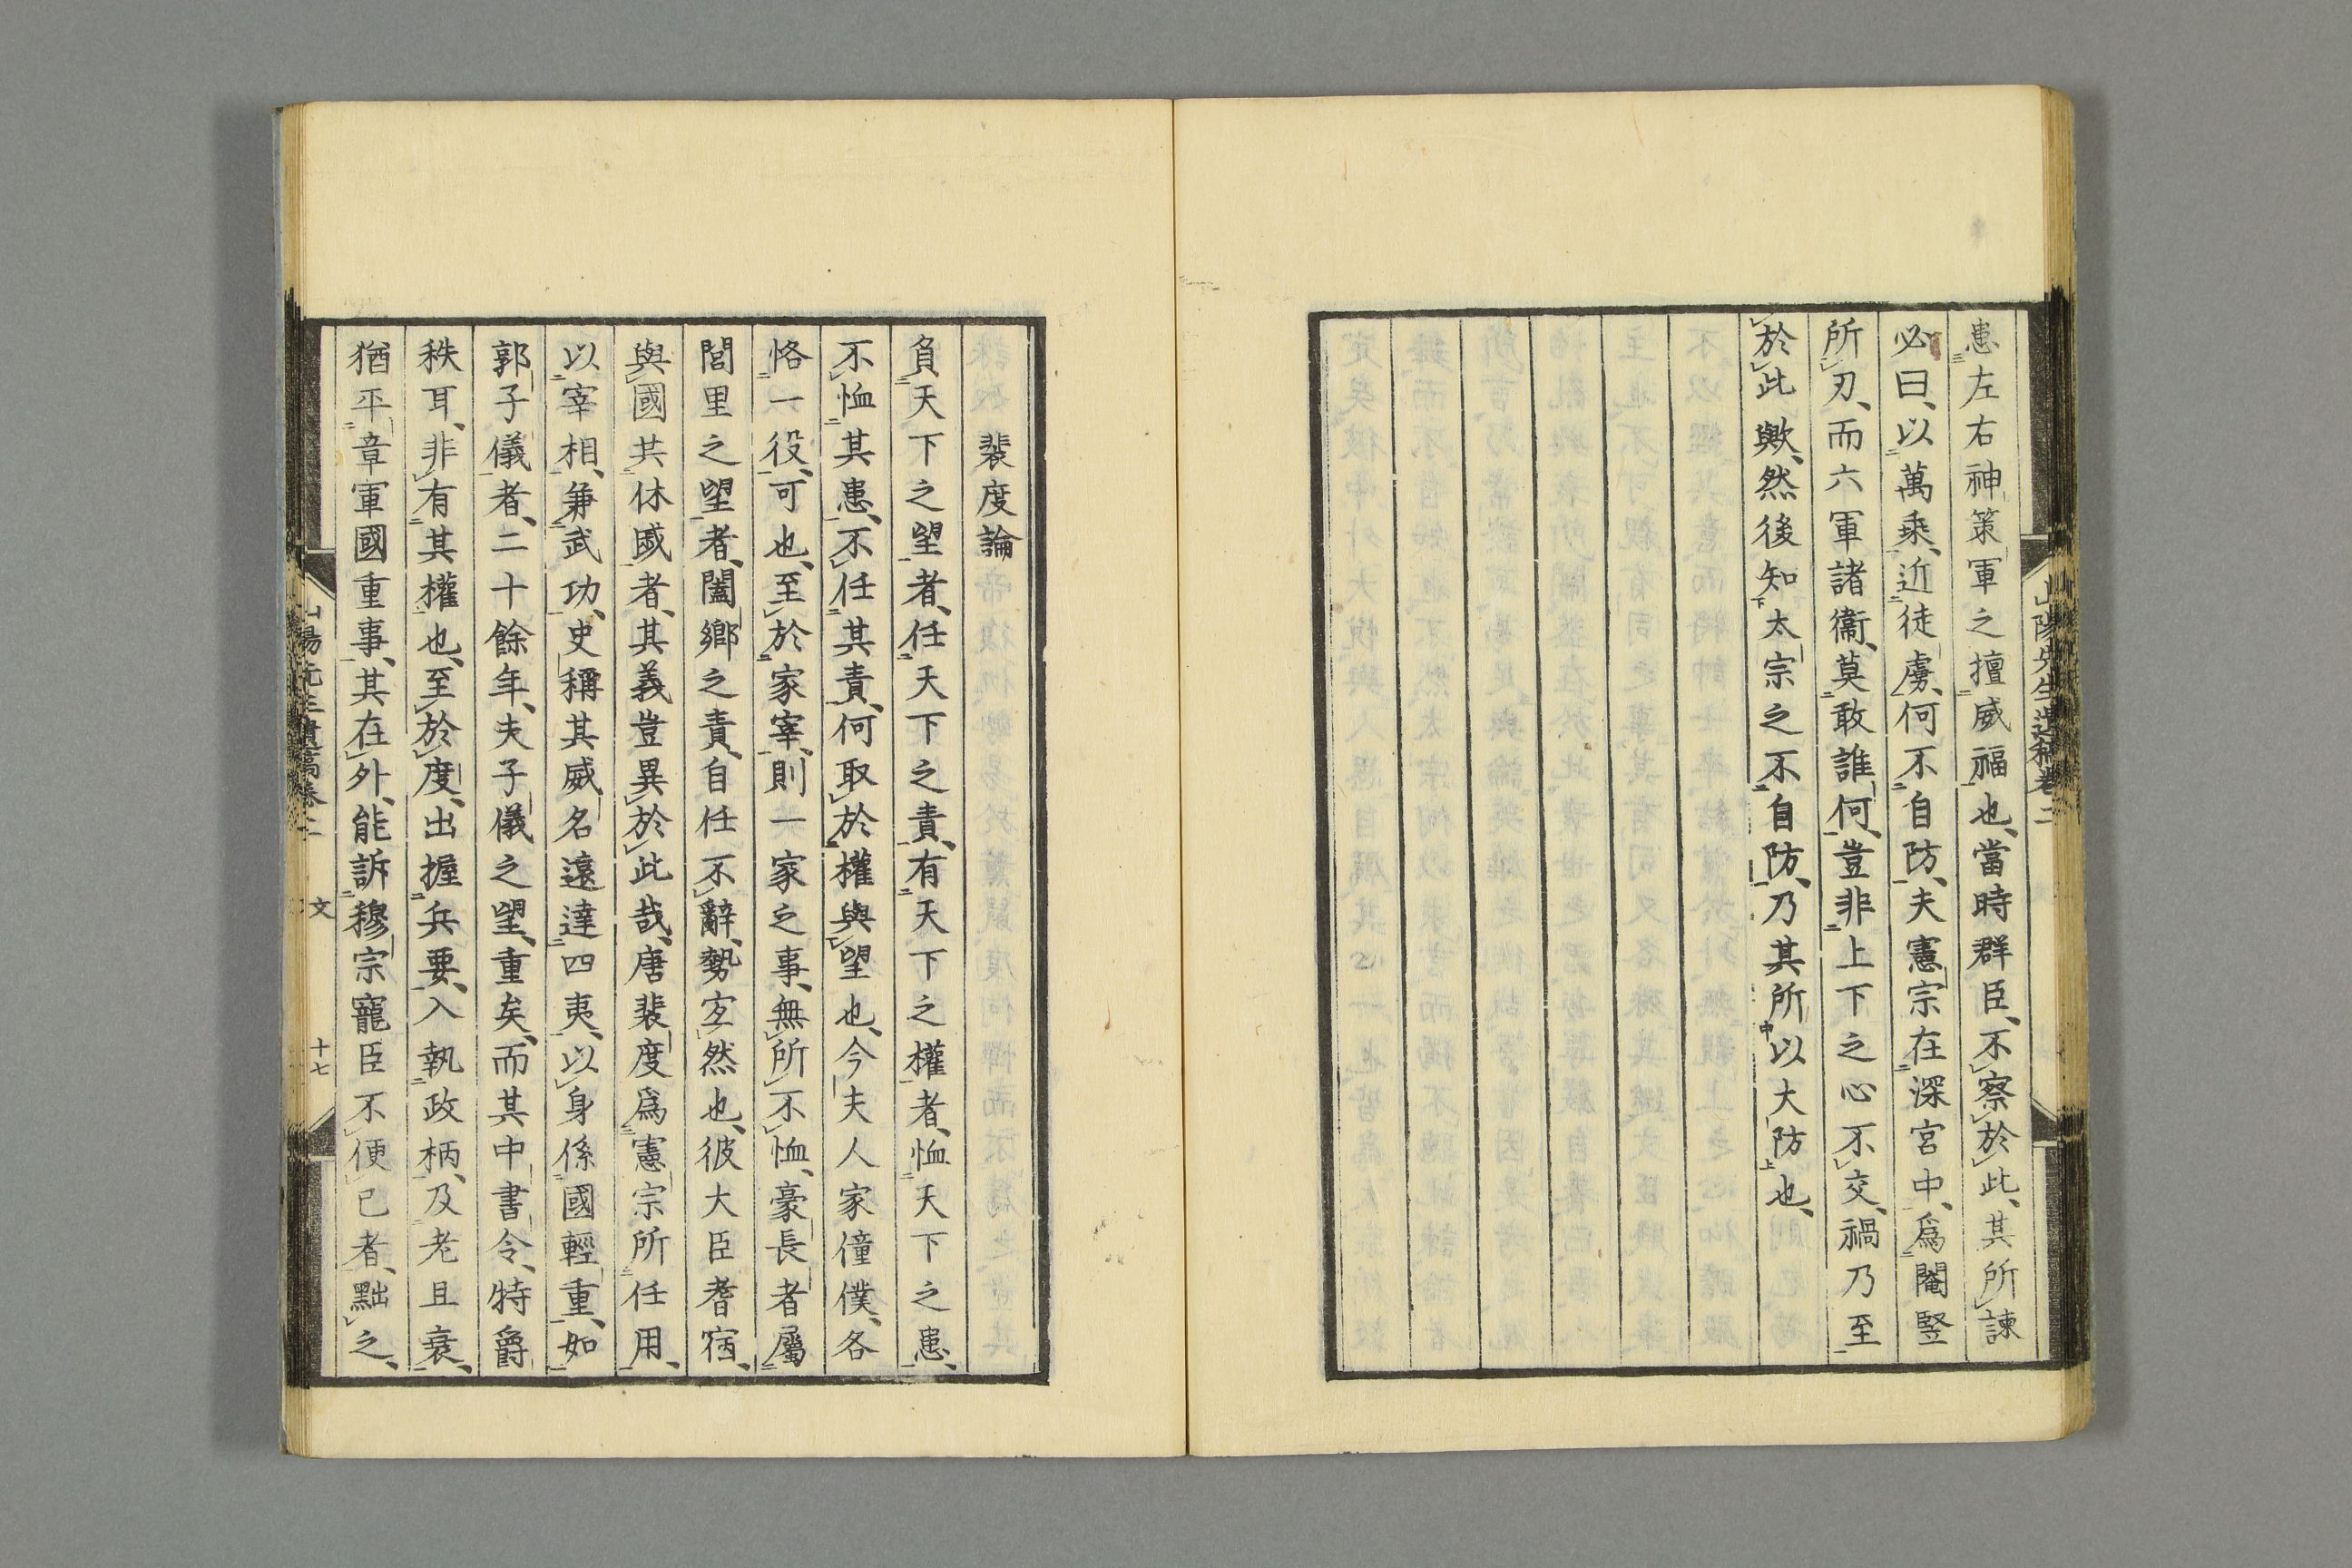 患左右神策軍之擅威福也、當時群臣、不察於此、其所諫
必曰、以萬乘、近徒虜、何不自防、夫憲宗在深宮中、爲閹竪
所刃、而六軍諸衞、莫敢誰何、豈非上下之心不交、禍乃至
於此歟、然後知太宗之不自防、乃其所以大防也、
裴度論
負天下之望者、任天下之責、有天下之權者、恤天下之患、
不恤其患、不任其責、何取於權與望也、今夫人家僮僕、各
恪一役、可也、至於家宰、則一家之事、無所不恤、豪長者屬
閭里之望者、闔鄉之責、自任不辭、勢宜然也、彼大臣耆宿、
與國共休戚者、其義豈異於此哉、唐裴度爲憲宗所任用、
以宰相、兼武功、史稱其威名遠達四夷、以身係國輕重、如
郭子儀者、二十餘年、夫子儀之望、重矣、而其中書令、特爵
秩耳、非有其權也、至於度、出握兵要、入執政柄、及老且衰、
猶平章軍國重事、其在外、能訴穆宗寵臣不便己者、黜之、
山陽先生遺稿卷二
文
十七